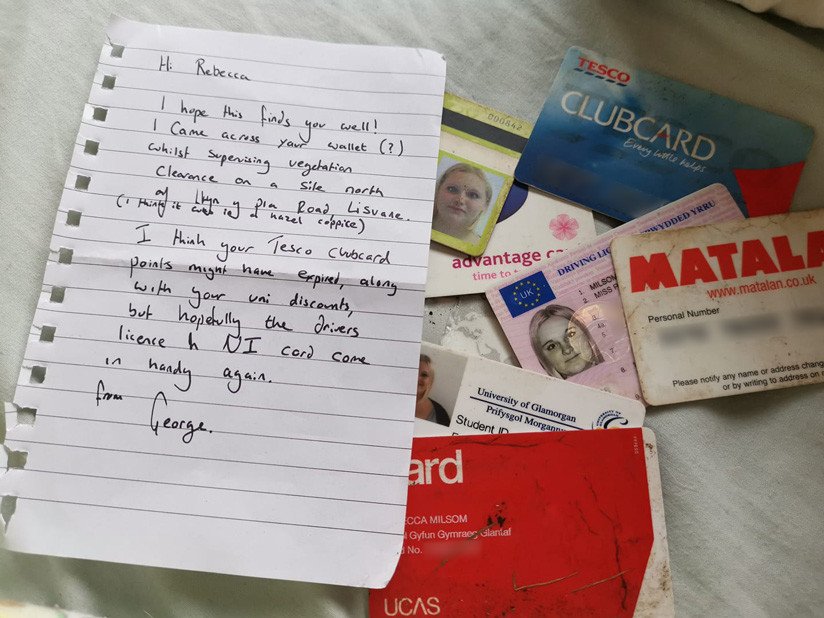 Hi Rebecca
I hope this finds you well!
I came across your wallet (?)
whilst supervising vegetation
clearance on a site north
of Llwyn y Pia Road, Lisvane.
(I think it was in a hazel coppice)
I think your Tesco Clubcard
points might have expired, along
with your uni discounts,
but hopefully the drivers
licence & NI card come
in handy again.
from
George.
000842
TESCO
CLUBCARD
Every little helps
advantage ca
time to
DRIVING LIC
WYDDED YRRU
UK
1. MILSOM
2. MISS R
3.
4a.
5.
MATALA
www.matalan.co.uk
Personal Number
Please notify any name or address chang
or by writing to address on r
University of Glamorgan
Prifysgol Morgannw
Student ID
ard
ECCA MILSOM
l Gyfun Gymraeg Glantaf
d No.
UCAS